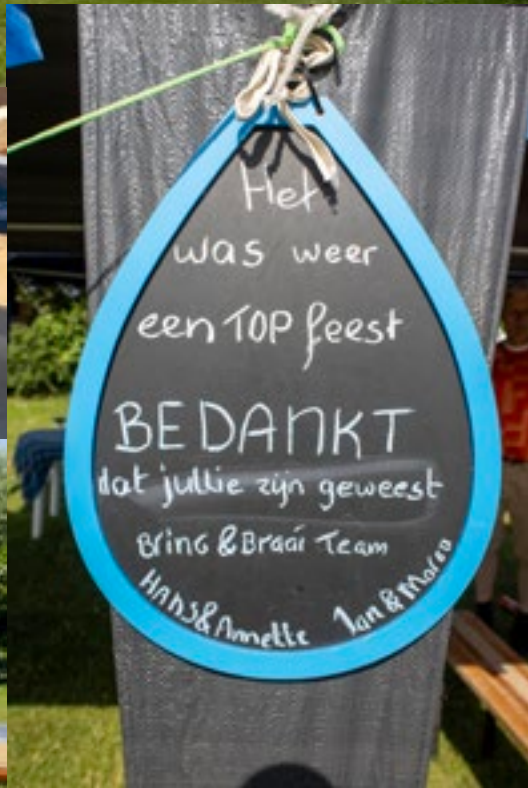 Het
was weer
een TOP feest
BEDANKT
dat jullie zijn geweest
Bring & Braai Team
HANS & Annette Jan &